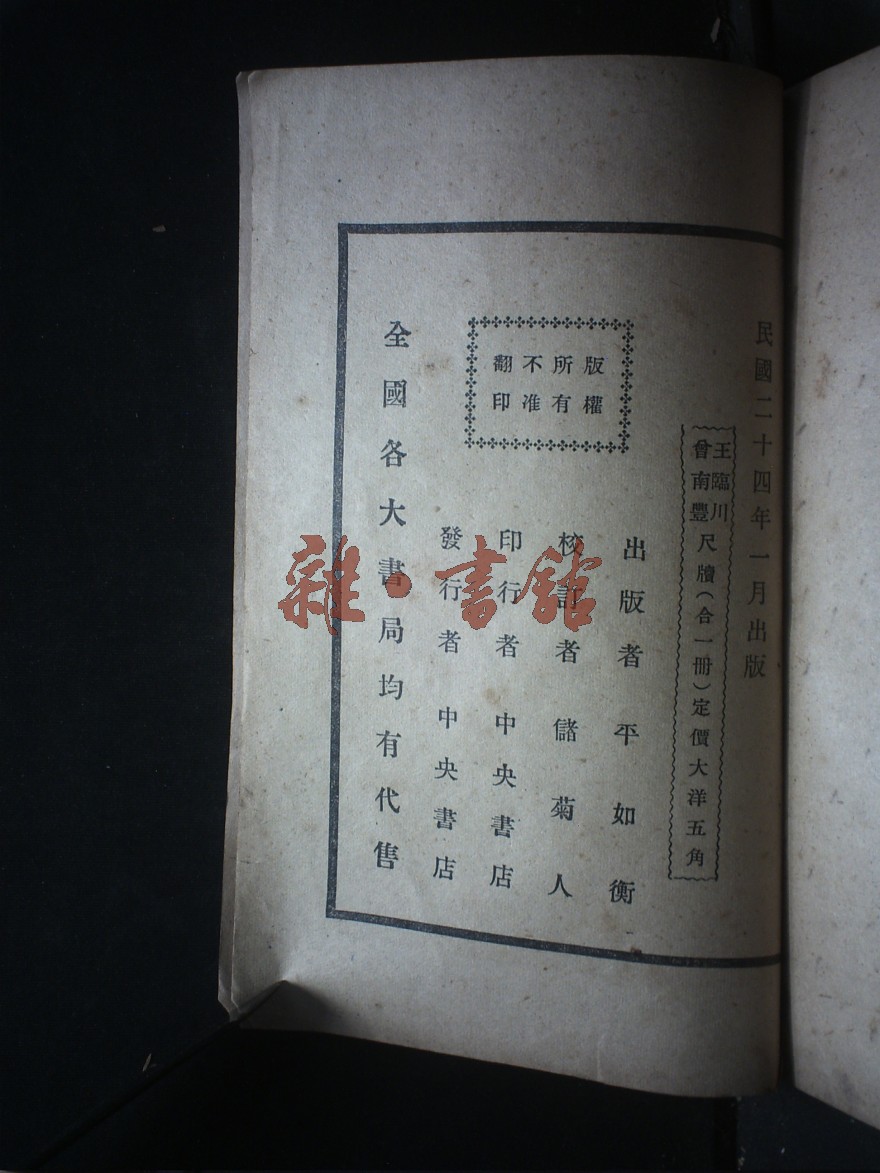 民國二十四年一月出版
王臨川
曾南豐
尺牘(合一冊)定價大洋五角
版權
所有
不准
翻印
出版者 平如衡
校訂者 儲菊人
印行者 中央書店
發行者 中央書店
全國各大書局均有代售
雜·書館